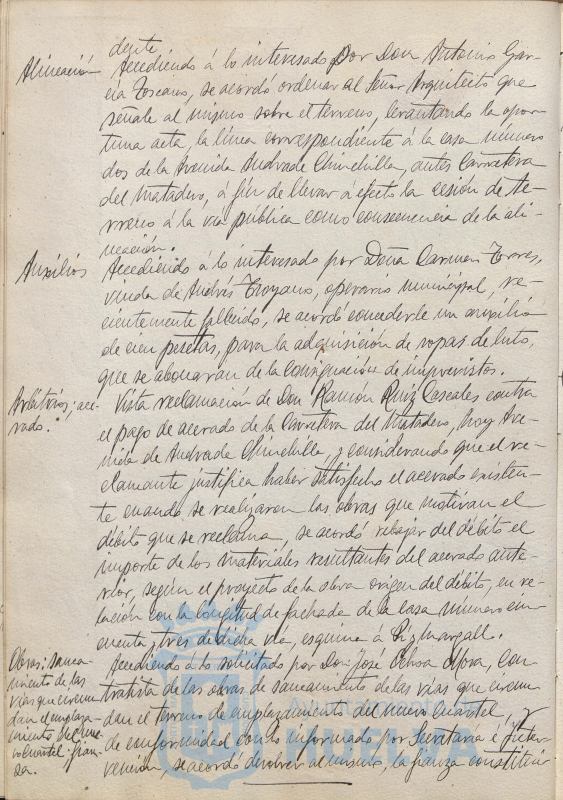 dente.
Alineación Accediendo á lo interesado por Don Antonio Gar-
cia Toscano, se acordó ordenar al Señor Arquitecto que
señale al mismo sobre el terreno, levantando la opor-
tuna acta, la línea correspondiente á la casa número
dos de la Avenida Andrade Chinchilla, antes Carretera
del Matadero, á fin de llevar á efecto la cesión de te-
rreno á la vía pública como consecuencia de la ali-
neación.
Auxilios Accediendo á lo interesado por Doña Carmen Torres,
viuda de Andrés Troyano, operario municipal, re-
cientemente fallecido, se acordó concederle un auxilio
de cien pesetas, para la adquisición de ropas de luto,
que se abonaran de la consignación de imprevistos.
Arbitrios; ace-
rado. Vista reclamación de Don Ramón Ruiz Cescales contra
el pago de acerado de la Carretera del Matadero, hoy Ave-
nida de Andrade Chinchilla, y considerando que el re-
clamante justifica haber satisfecho el acerado existen-
te cuando se realizaron las obras que motivan el
débito que se reclama, se acordó rebajar del débito el
importe de los materiales resultantes del acerado ante-
rior, según el proyecto de la obra origen del débito, en re-
lación con la longitud de fachada de la casa número cin-
cuenta y tres de dicha vía, esquina á Pi y Margall.
Obras; sanea-
miento de las
vías que circun-
dan el emplaza-
miento del nue-
vo cuartel: fian-
za.
Accediendo á lo solicitado por Don José Ochoa Mora, con-
tratista de las obras de saneamiento de las vías que circun-
dan el terreno de emplazamiento del nuevo Cuartel, y
de conformidad con lo informado por Secretaría é Inter-
vención, se acordó devolver al mismo, la fianza constitui-
Ayuntamiento de
HUELVA